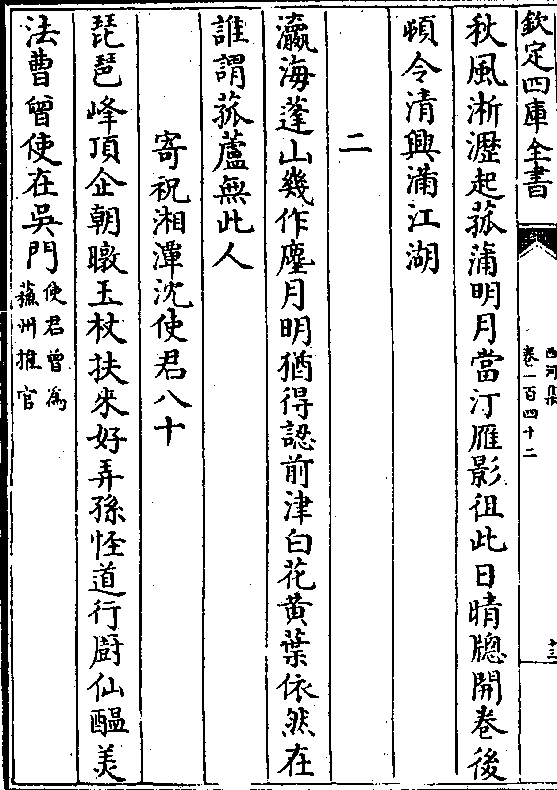 欽定四庫全書
西河集
卷一百四十二
十三
秋風淅瀝起菰蒲明月當汀雁影徂此日晴牕開卷後
頓令清興滿江湖
二
瀛海蓬山幾作塵月明猶得認前津白花黄葉依然在
誰謂菰蘆無此人
寄祝湘潭沈使君八十
琵琶峰頂企朝暾玉杖扶來好弄孫怪道行厨仙醖美
法曹曾使在吳門使君曾為
蘇州推官